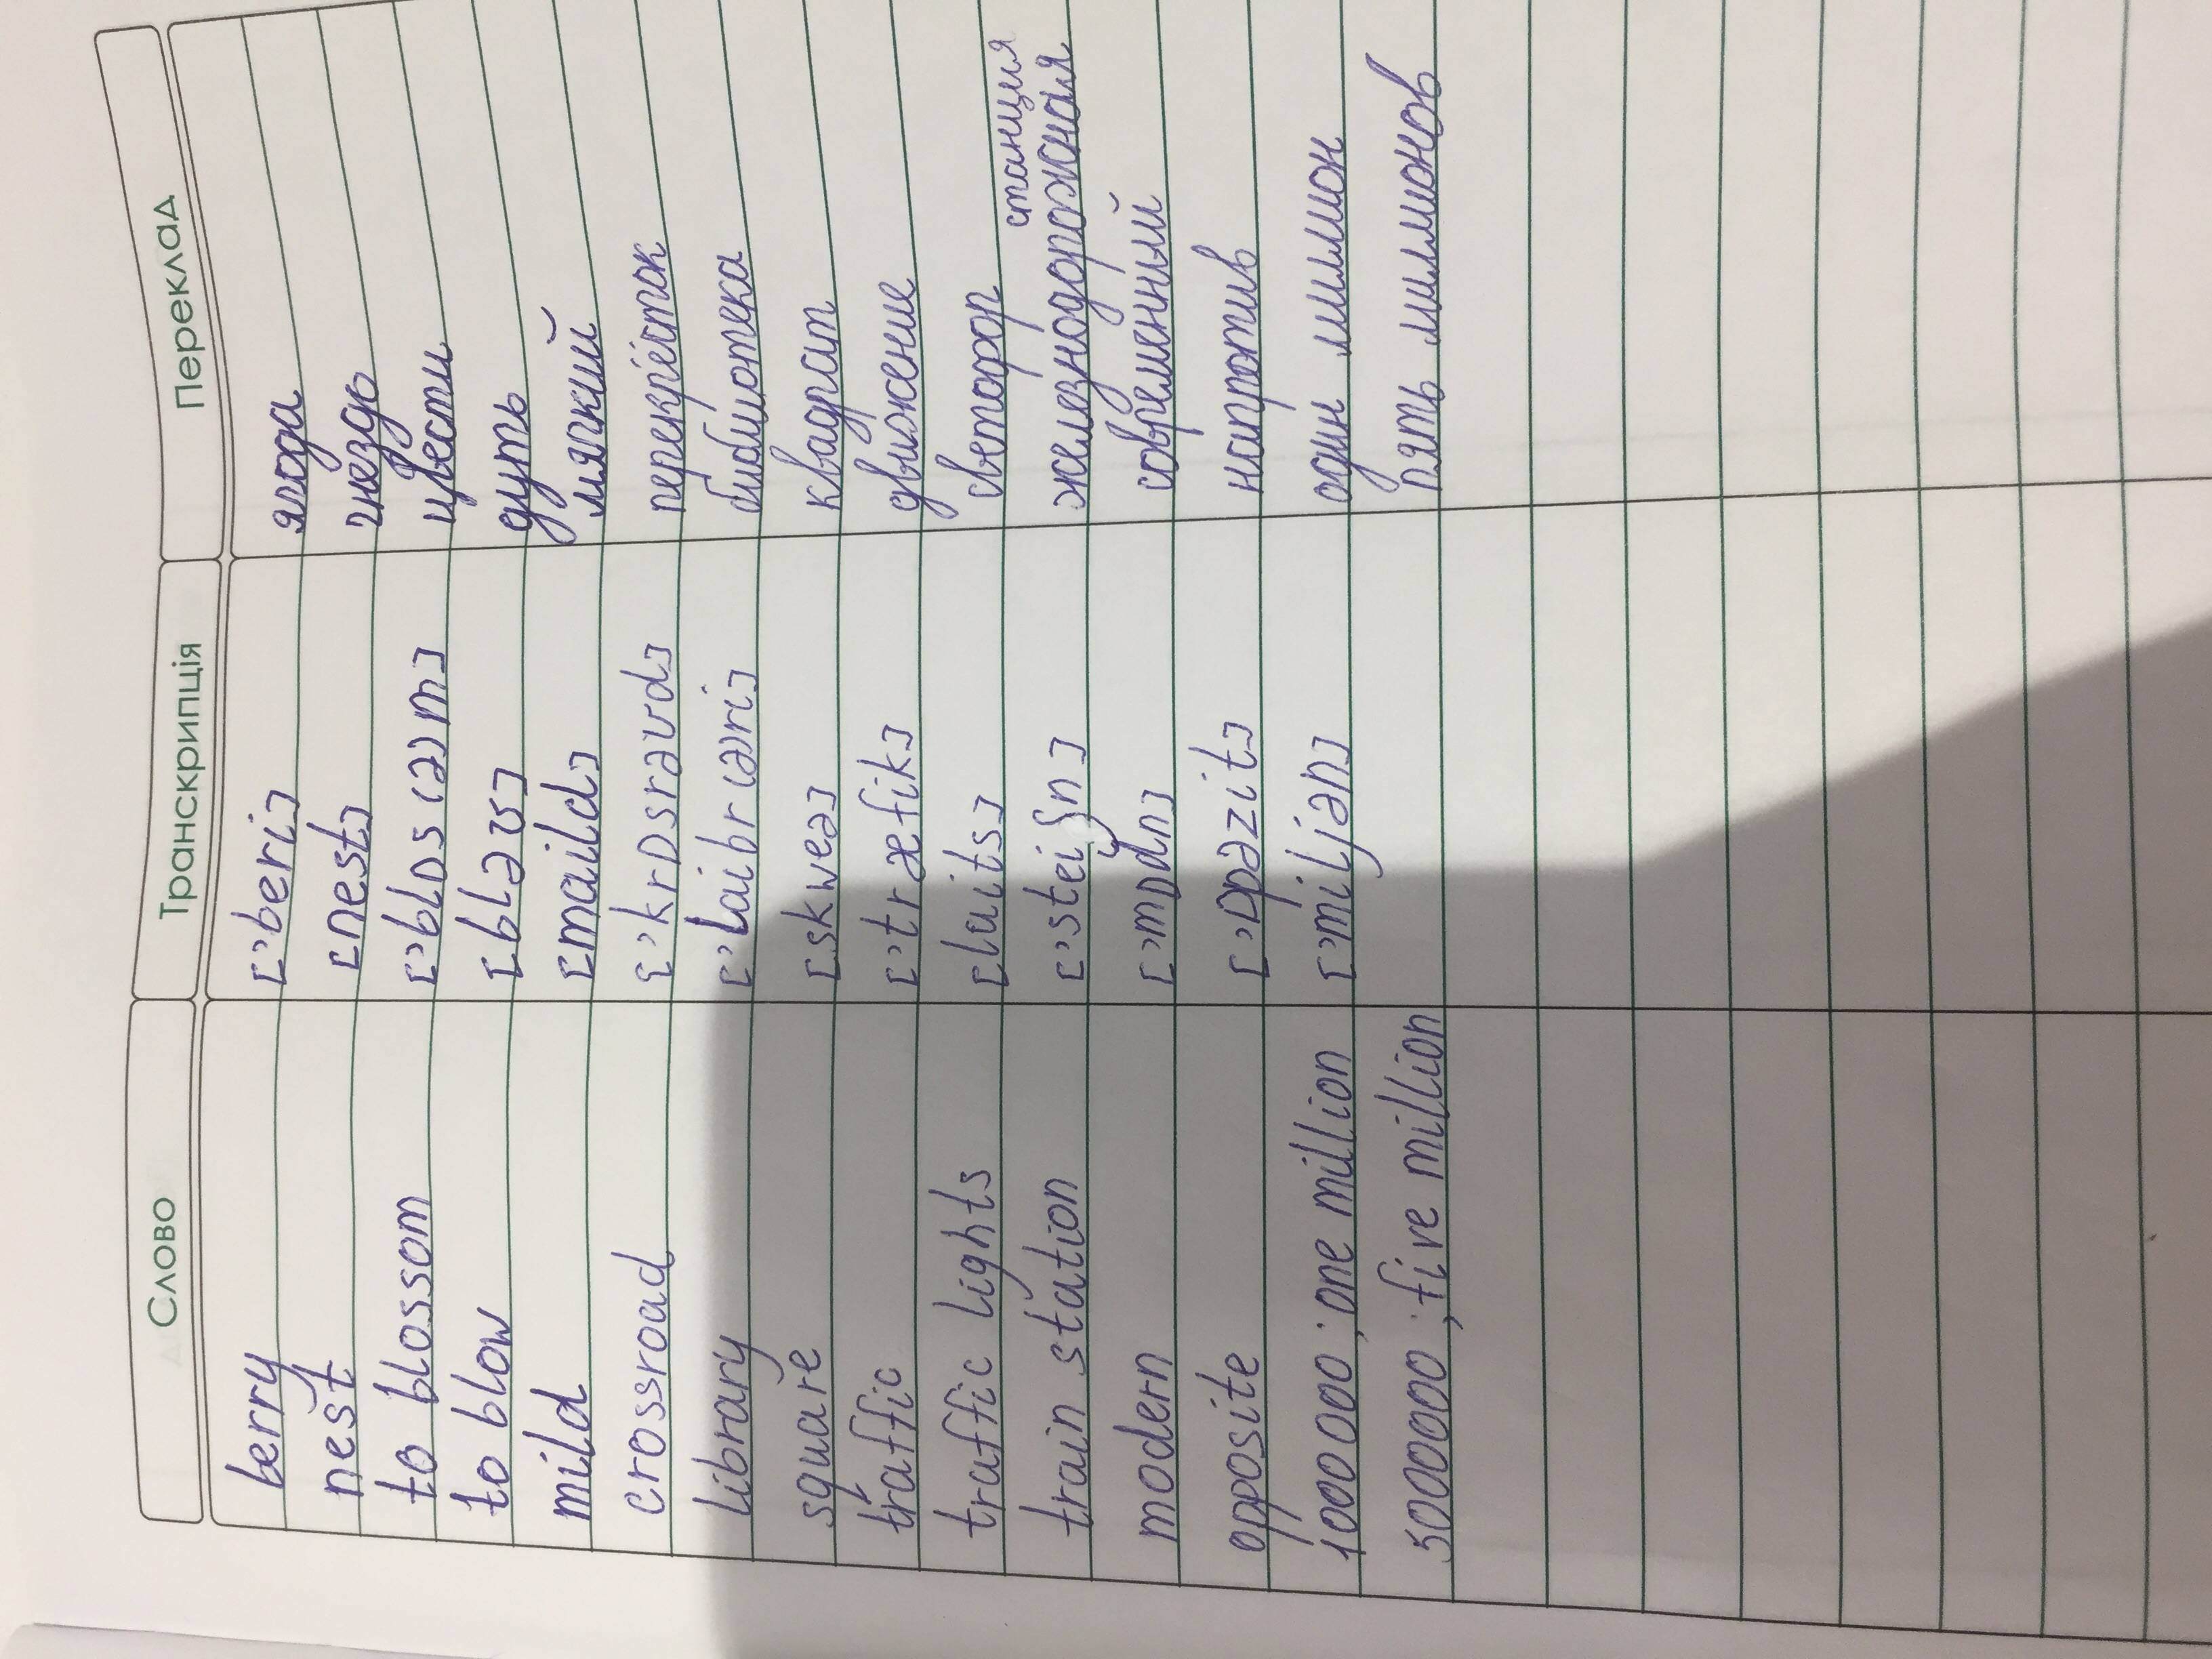 Слово Транскрипція Переклад
berry ['beri] ягода
nest [nest] гнездо
to blossom ['blɒs(ə)m] цвести
to blow [bləʊ] дуть
mild [maild] мягкий
crossroad ['krɒsrəʊd] перекрёсток
library ['laibr(ə)ri] библиотека
square [skweə] квадрат
traffic ['træfik] движение
traffic lights [laits] светофор
станция
train station ['steiʃn] железнодорожная
modern ['mɒdn] современный
opposite ['ɒpəzit] напротив
1000000; one million ['miljən] один миллион
5000000; five million пять миллионов